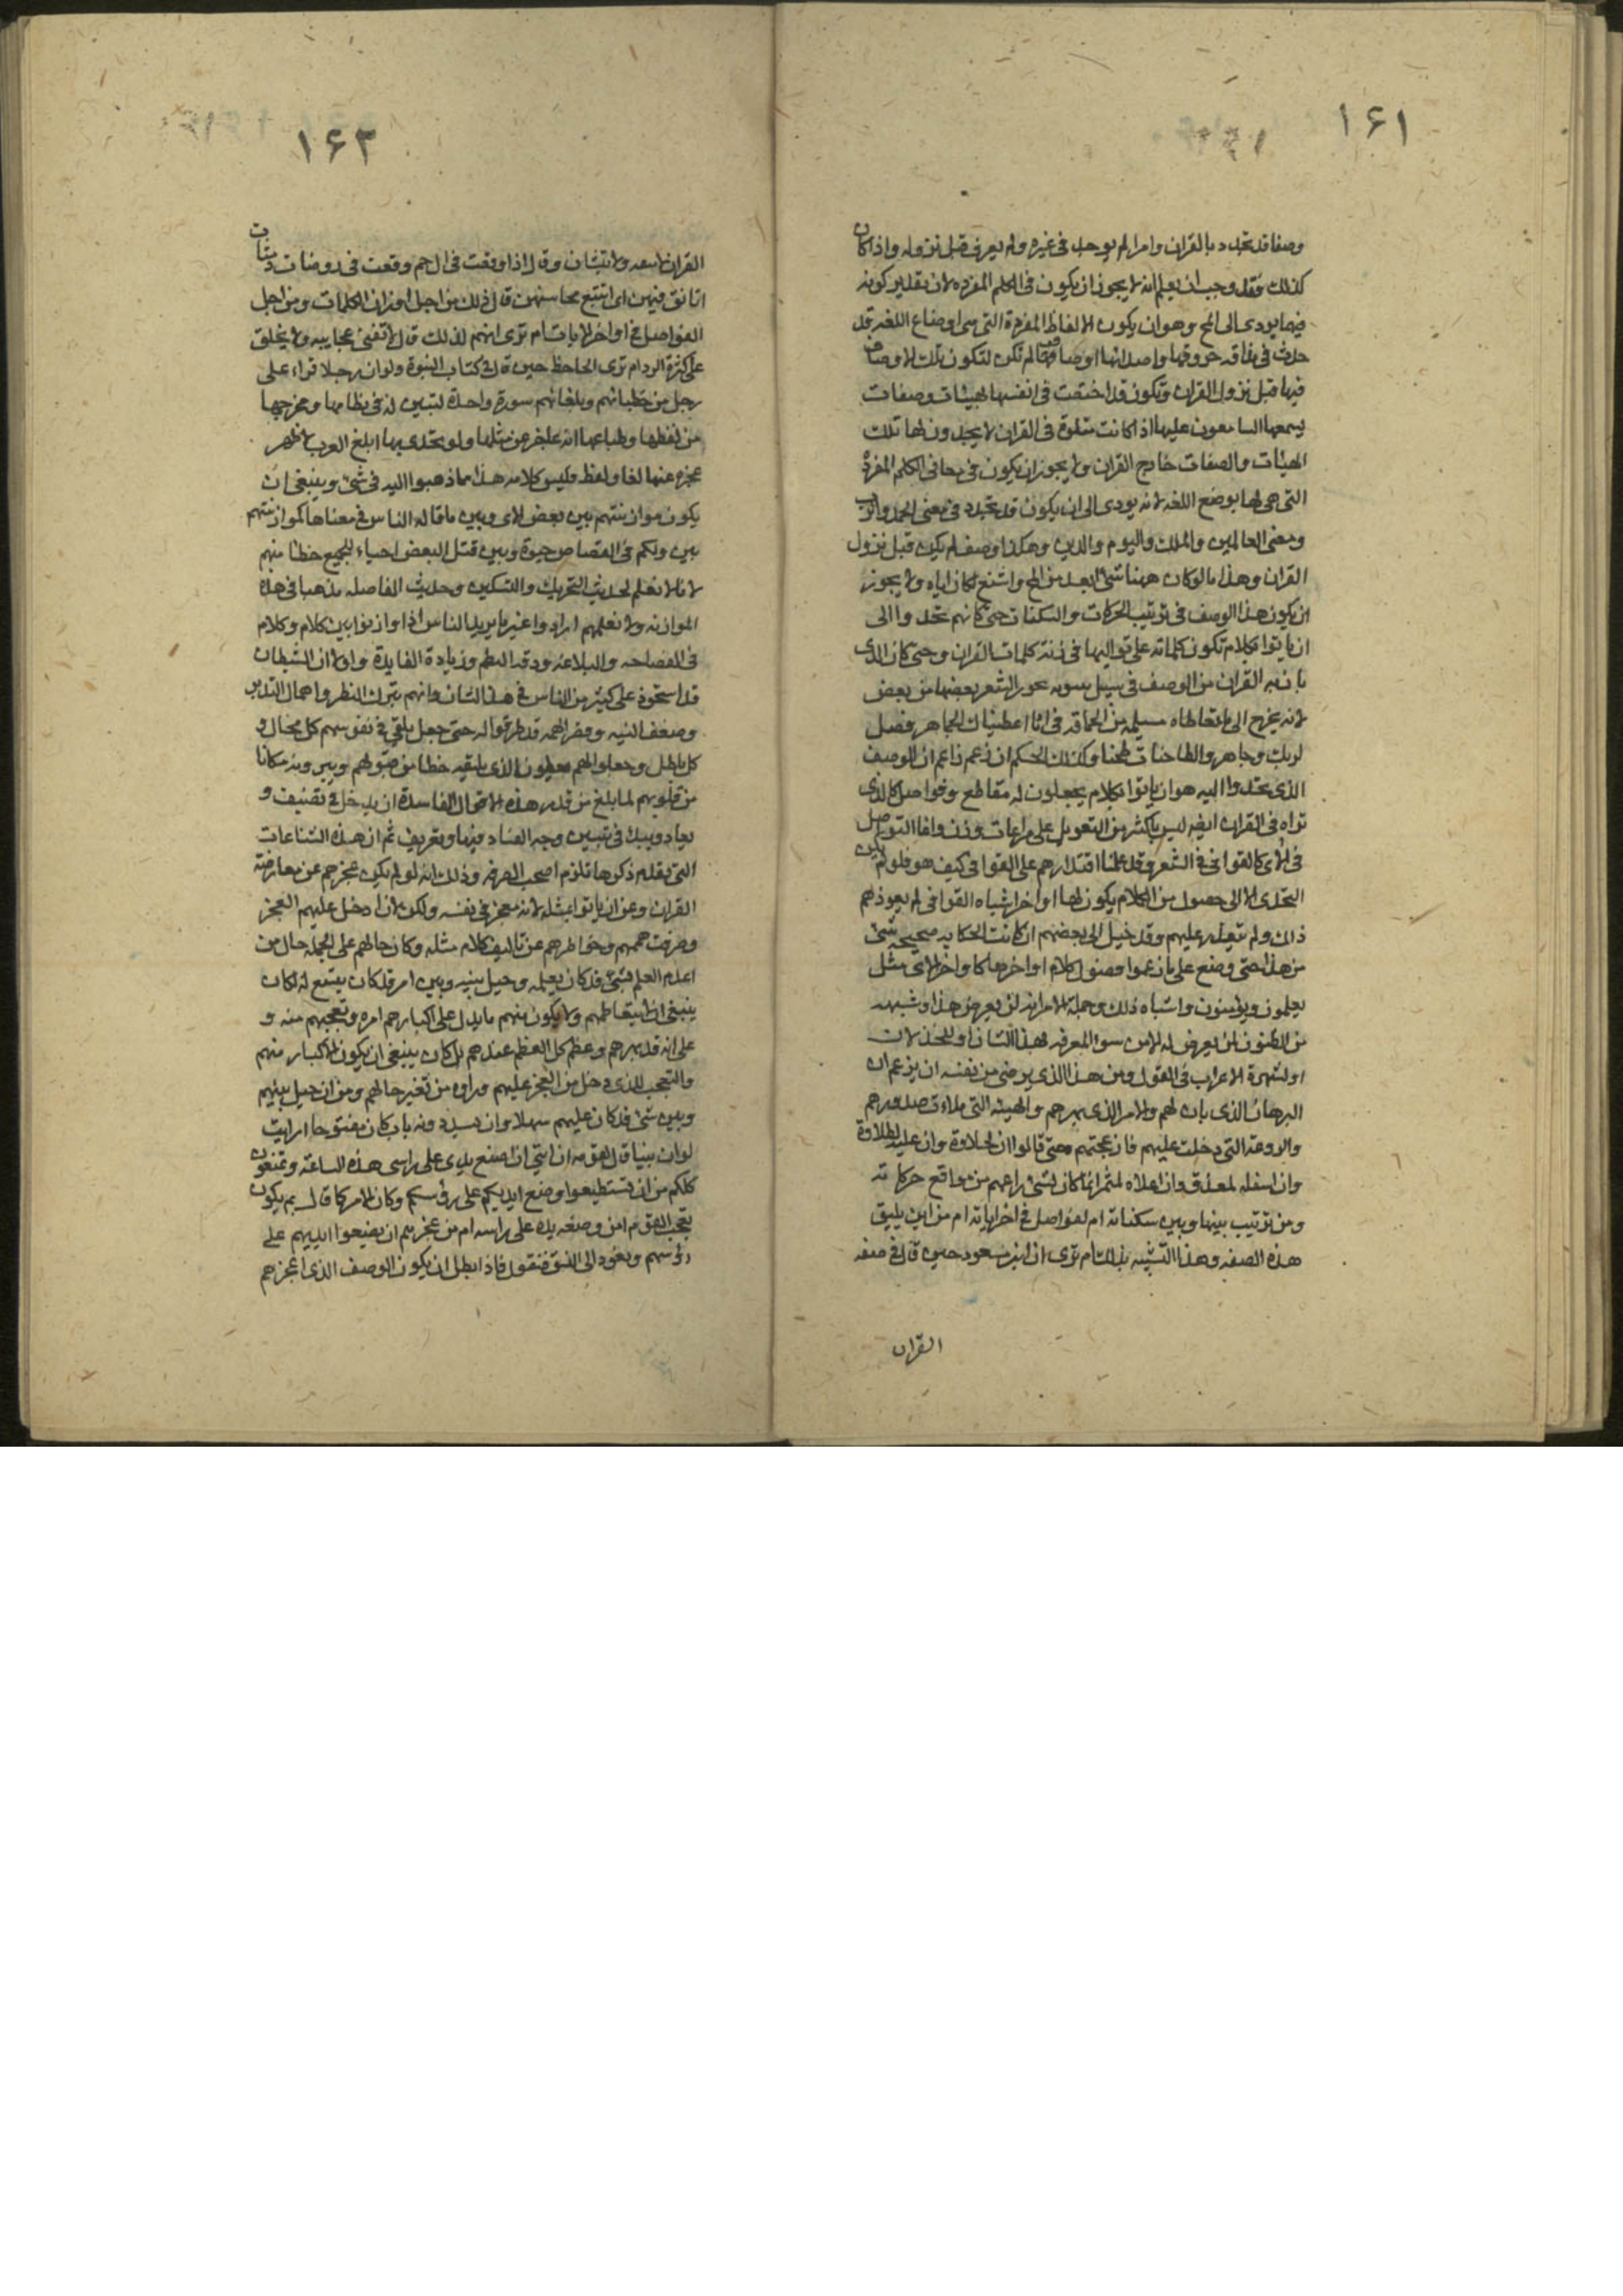 ۱۶۱
وصفا قد تجدد بالقران وامرا لم يوجد فى غيره ولم يعرف قبل نزوله واذا كان
كذلك فقد وجب ان يعلم انه لا يجوز ان يكون فى الكلم المفرده لان تقدير كونه
فيها يودى الى المح وهو ان يكون الالفاظ المفردة التى هى اوضاع اللغه قد
حدث فى مذاقه حروفها واصدائها اوصاف لم تكن لتكون تلك الاوصاف
فيها قبل نزول القران وتكون قد اختصت فى انفسها بهيئات وصفات
يسمعها السامعون عليها اذا كانت متلوة فى القران لا يجدون لها تلك
الهيئات والصفات خارج القران ولا يجوز ان يكون فى معانى الكلم المفردة
التى هى لها بوضع اللغه لانه يودى الى ان يكون قد تجدد فى معنى الحمد والرب
ومعنى العالمين والملك واليوم والدين وهكذا وصف لم يكن قبل نزول
القران وهذا ما لو كان ههنا شئ ابعد من المح واشنع لكان اياه ولا يجوز
ان يكون هذا الوصف فى ترتيب الحركات والسكنات حتى كانهم تحدوا الى
ان ياتوا بكلام تكون كلماته على تواليها فى زنة كلمات القران وحتى كان الذى
بان به القران من الوصف فى سبيل بينونه بحور الشعر بعضها من بعض
لانه يخرج الى ما تعاطاه مسيلمه من الحماقه فى انا اعطيناك الجاهر فصل
لربك وجاهر والطاحنات طحنا وكذلك الحكم ان زعم زاعم ان الوصف
الذى تحدوا اليه هو ان ياتوا بكلام يجعلون له مقاطع وفواصل كالذى
تراه فى القران ايضه ليس باكثر من التعويل على مراعات وزن وانما التواصل
فى الاى كالقوافى فى الشعر وقد علمنا اقتدارهم على القوافى كيف هو فلو لم يكن
التحدى الا الى حصول من الكلام يكون لها اواخر اشباه القوافى لم يعوذهم
ذالك ولم يتعذر عليهم وقد خيل الى بعضهم ان كانت الحكايه صحيحه شئ
من هذا حتى وضع على ما زعموا فصول كلام اواخرها كاواخر الاى مثل
يعلمون ويؤمنون واشباه ذلك وجملة الامر انه لن يعرض هذا وشبهه
من الظنون لمن يعرض له الا من سوء المعرفه لهذا الشان او للخذلان
او لشهرة الاغراب فى القول ومن هذا الذى يرضى من نفسه ان يزعم ان
البرهان الذى بان لهم والامر الذى بهرهم والهيبه التى ملاءت صدورهم
والروعة التى دخلت عليهم فازعجتهم حتى قالوا ان له لحلاوة وان عليه لطلاوة
وان اسفله لمعذق وان اعلاه لمثمر انما كان لشئ راعهم من مواقع حركاته
ومن ترتيب بينها وبين سكناته ام لفواصل فى اخر اياته ام من اين يليق
هذه الصفه وهذا التشبيه بذلك ام ترى ان ابن مسعود حين قال فى صفه
القران
۱۶۲
القران لا يتفه ولا يتشان وقال اذا وقعت فى ال حم وقعت فى روضات دمثات
اتانق فيهن اى اتتبع محاسنهن قال ذلك من اجل اوزان الكلمات ومن اجل
الفواصل فى اواخر الايات ام ترى انهم لذلك قالوا لا تفنى عجايبه ولا يخلق
على كثرة الرد ام ترى الجاحظ حين قال فى كتاب النبوة ولو ان رجلا قراء على
رجل من خطبائهم وبلغائهم سورة واحدة لتبين له فى نظامها ومخرجها
من لفظها وطباعها انه عاجز عن مثلها ولو تحدى بها ابلغ العرب لاظهر
عجزه عنها لغا ولفظ وليس كلامه هذا مما ذهبوا اليه فى شئ وينبغى ان
يكون موازنتهم بين بعض الاى وبين ما قاله الناس فى معناها كموازنتهم
بين ولكم فى القصاص حيوة وبين قتل البعض احياء للجميع خطا منهم
لانا لا نعلم لحديث التحريك والتسكين وحديث الفاصله مذهبا فى هذه
الموازنه ولا نعلمهم ارادوا غير ما يريد الناس اذا وازنوا بين كلام وكلام
فى الفصاحه والبلاغه ودقه النظم وزيادة الفايدة ولولا ان الشيطان
قد استحوذ على كثير من الناس فى هذا الشان وانهم بترك النظر واهمال التدبر
وضعف النيه وقصر الهمه قد طرقوا له حتى جعل يلقى فى نفوسهم كل محال و
كل باطل وجعلوا هم يعطون الذى يلقيه حظا من قبولهم ويبوونه مكانا
من قلوبهم لما بلغ من قدر هذه الاقوال الفاسدة ان يدخل فى تصنيف و
يعاد ويبدء فى تبيين وجه الفساد فيها وتعريف ثم ان هذه الشناعات
التى تقدم ذكرها تلزم اصحب الصرفه وذلك انه لو لم يكن عجزهم عن معارضة
القران وعن ان ياتوا بمثله لانه معجز فى نفسه ولكن لان ادخل عليهم العجز
وصرفت هممهم وخواطرهم عن تاليف كلام مثله وكان حالهم على الجمله حال من
اعدم العلم بشئ قد كان يعلمه وحيل بينه وبين امر قد كان يتسع له لكان
ينبغى ان لا يتعاظمهم ولا يكون منهم ما يدل على اكبارهم امره وتعجبهم منه و
على انه قد بهرهم وعظم كل العظم عندهم بل كان ينبغى ان يكون الاكبار منهم
والتعجب للذى دخل من العجز عليهم وراوه من تغير حالهم ومن ان حيل بينهم
وبين شئ قد كان عليهم سهلا وان سد دونه باب كان مفتوحا ارايت
لو ان نبيا قال لقومه ان ايتى ان اضع يدى على راسى هذه الساعة وتمنعون
كلكم من ان تستطيعوا وضع ايديكم على رؤسكم وكان الامر كما قال بم يكون
تعجب القوم امن وضعه يده على راسه ام من عجزهم ان يضعوا ايديهم على
رؤسهم ونعود الى النسق فنقول فاذا بطل ان يكون الوصف الذى اعجزهم